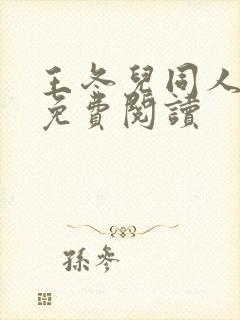 王冬兒同人
免費閱讀
孫參